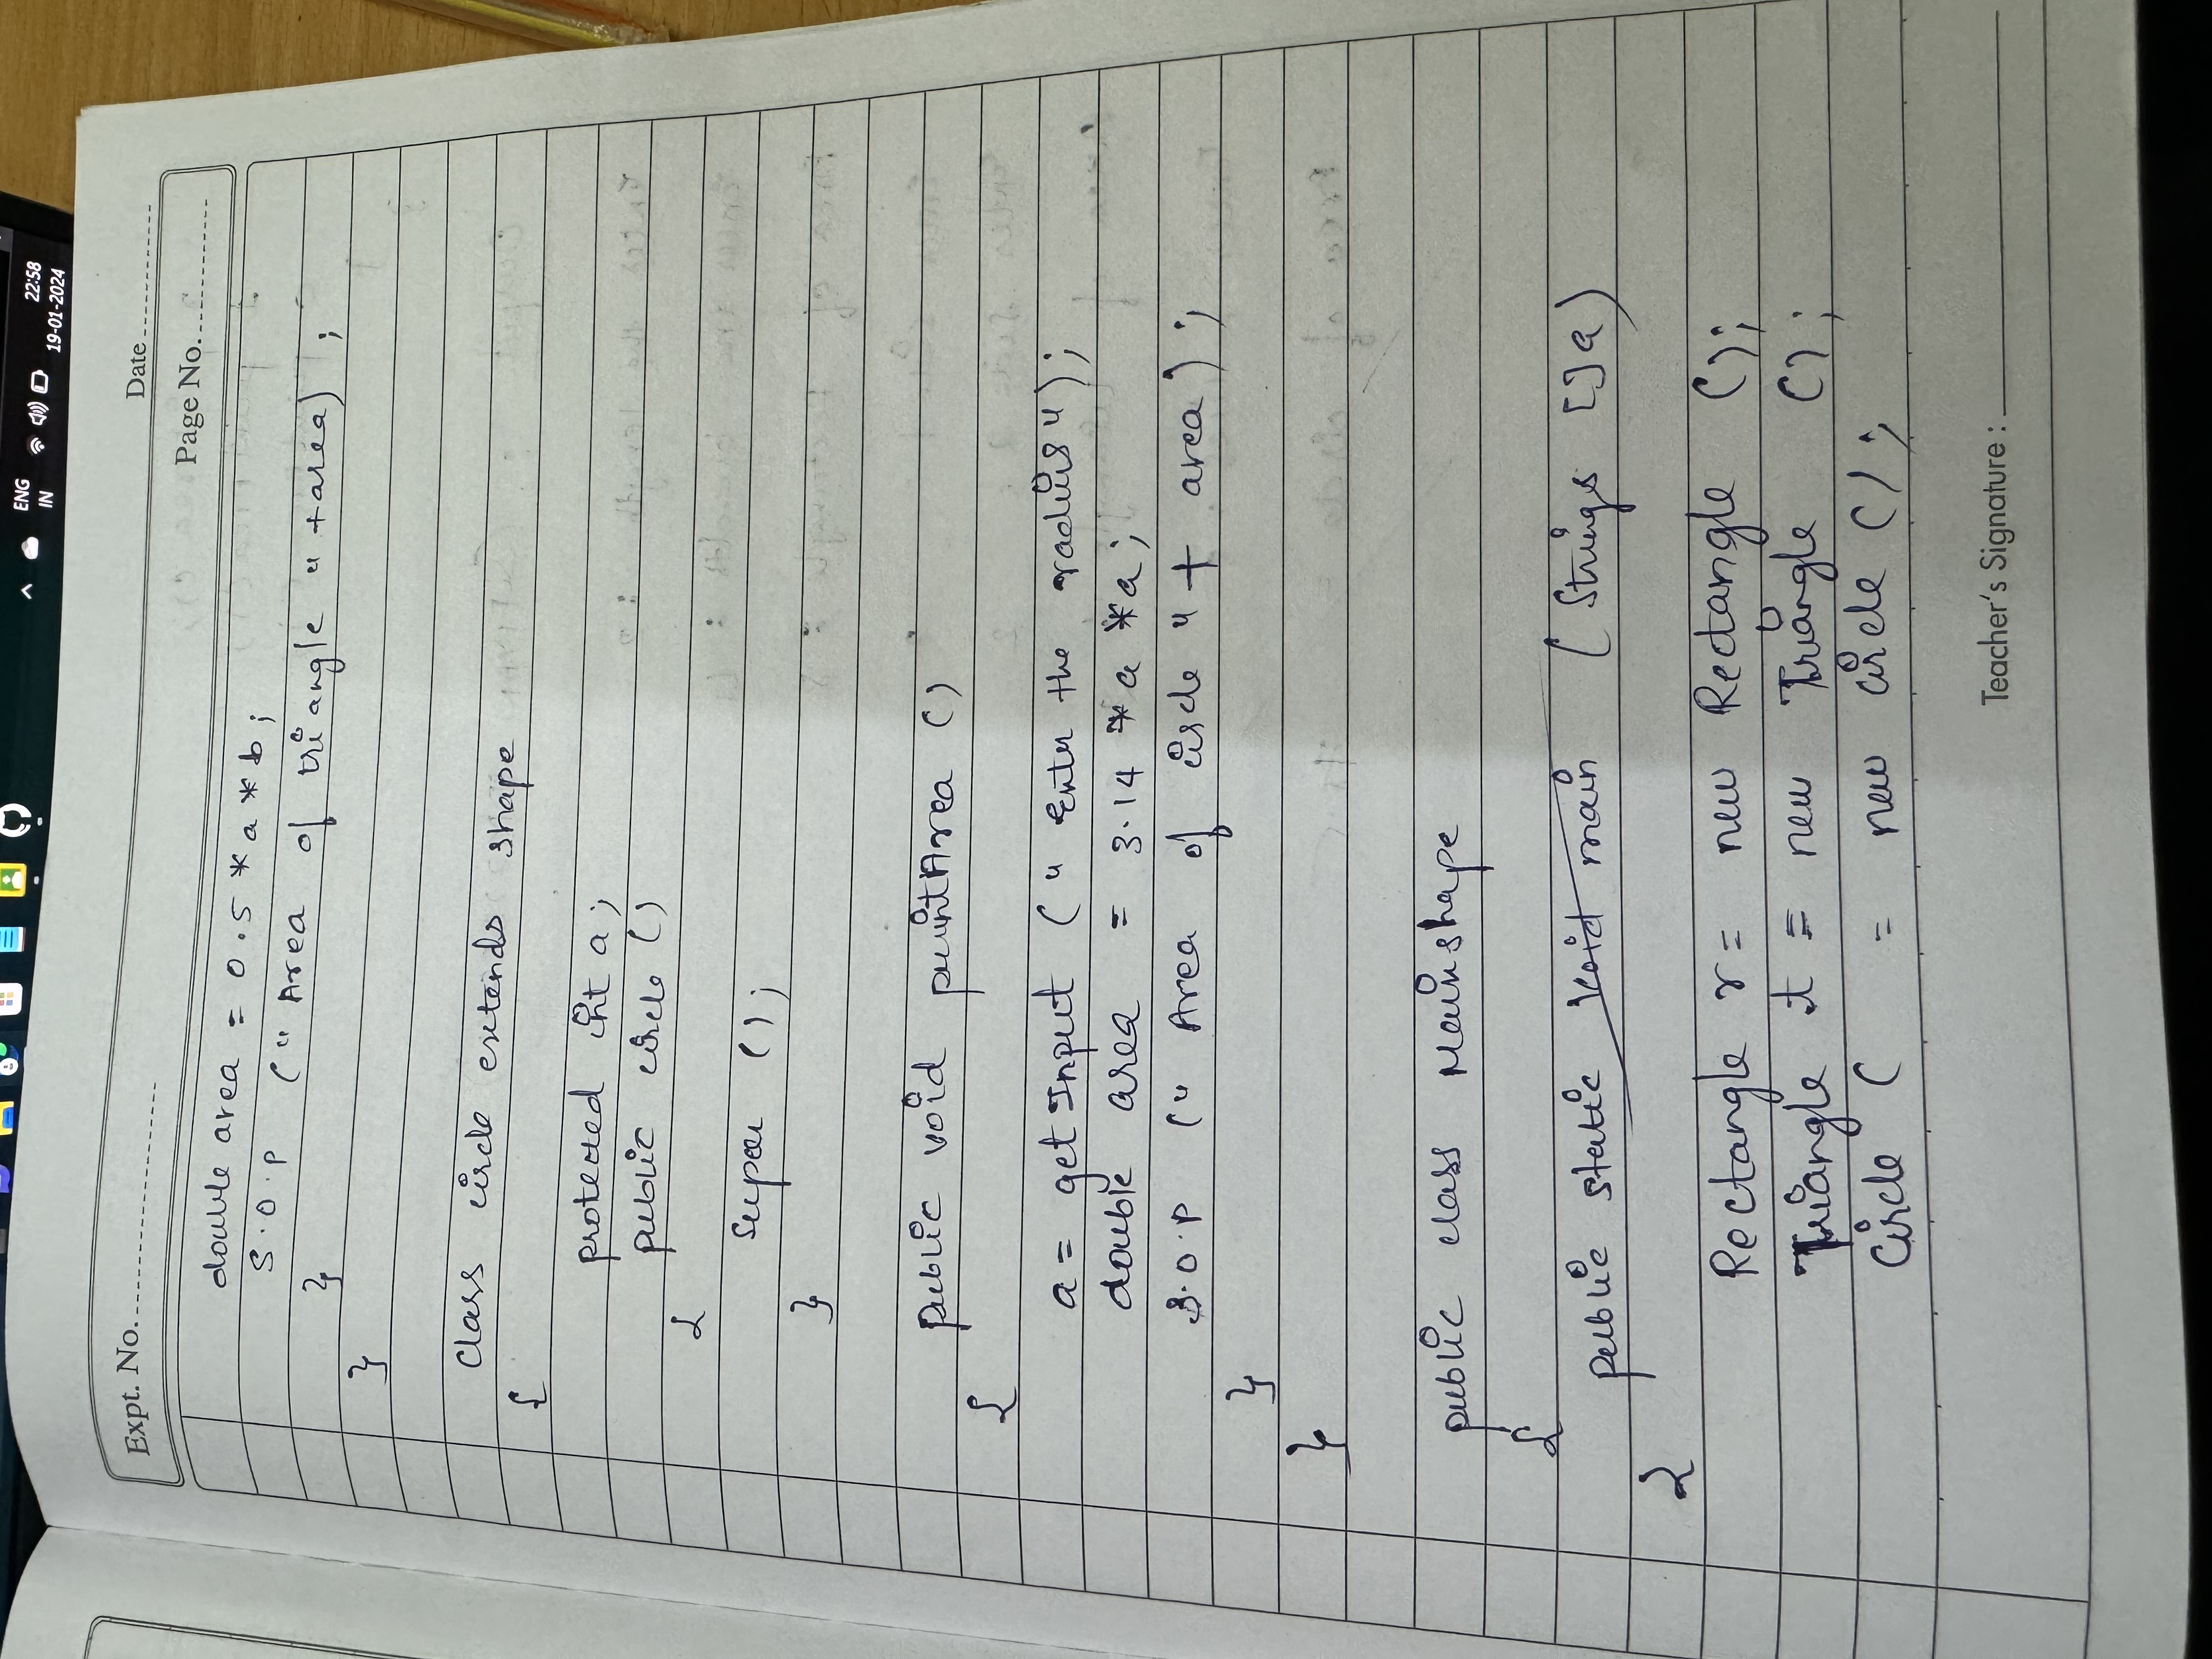 ENG
IN
22:58
19-01-2024
Expt. No.
Date
Page No.
double area = 0.5 * a * b;
S.O.P (" Area of triangle " + area) ;
}
}
class circle extends shape
{
protected int a;
public circle ()
{
super ();
}
public void printArea ()
{
a = getInput (" Enter the radius");
double area = 3.14 * a * a;
S.O.P (" Area of circle " + area) ;
}
}
public class Mainshape
{
public static void main (Strings []a)
{
Rectangle r = new Rectangle ();
Triangle t = new Triangle ();
Circle ( = new circle ();
Teacher's Signature :